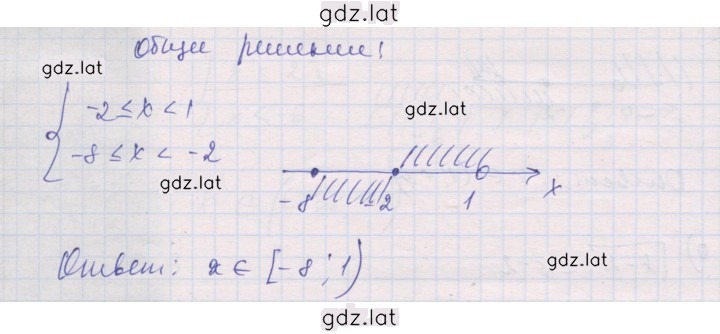 gdz.lat
Общее решение:
gdz.lat
-2 ≤ x < 1
gdz.lat
-8 ≤ x < -2
gdz.lat
-8 -2 1 x
Ответ: x ∈ [-8; 1)
gdz.lat
gdz.lat